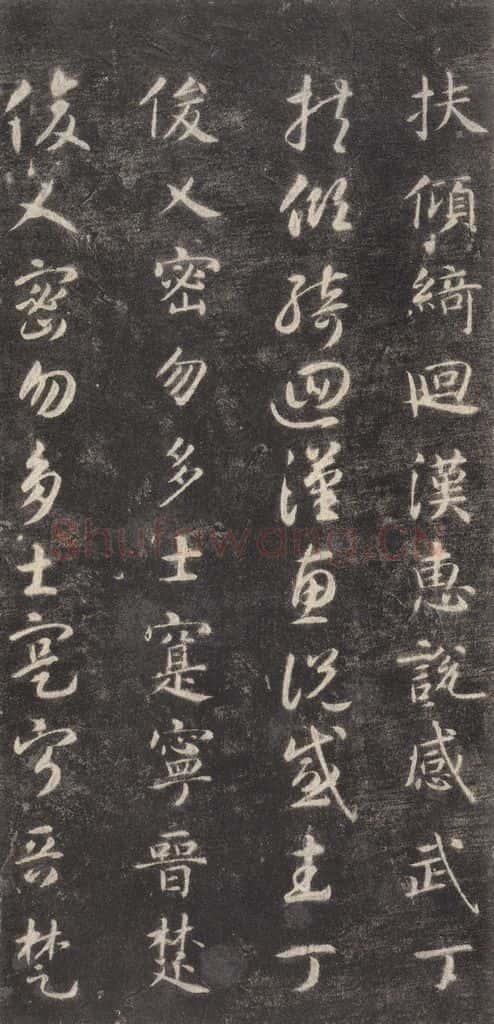 扶傾綺迴漢惠說感武丁
扶傾綺迴漢惠說感武丁
俊乂密勿多士寔寧晉楚
俊乂密勿多士寔寧晉楚
Shufawang.CN